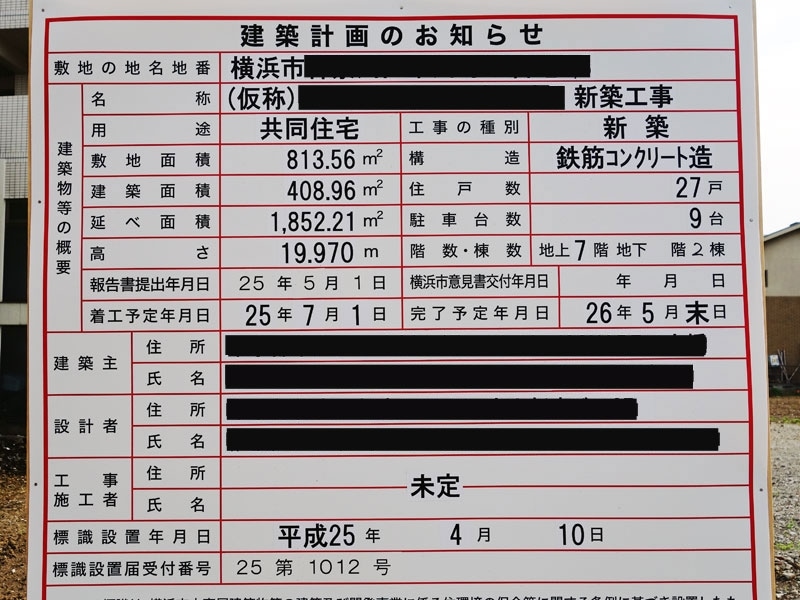 建築計画のお知らせ
敷地の地名地番 横浜市
建築物等の概要
名称 (仮称) 新築工事
用途 共同住宅 工事の種別 新築
敷地面積 813.56 m² 構造 鉄筋コンクリート造
建築面積 408.96 m² 住戸数 27戸
延べ面積 1,852.21 m² 駐車台数 9台
高さ 19.970 m 階数・棟数 地上7階 地下 階2棟
報告書提出年月日 25年5月1日 横浜市意見書交付年月日 年 月 日
着工予定年月日 25年7月1日 完了予定年月日 26年5月末日
建築主 住所
氏名
設計者 住所
氏名
工事施工者 住所 未定
氏名
標識設置年月日 平成25年 4月 10日
標識設置届受付番号 25 第 1012 号